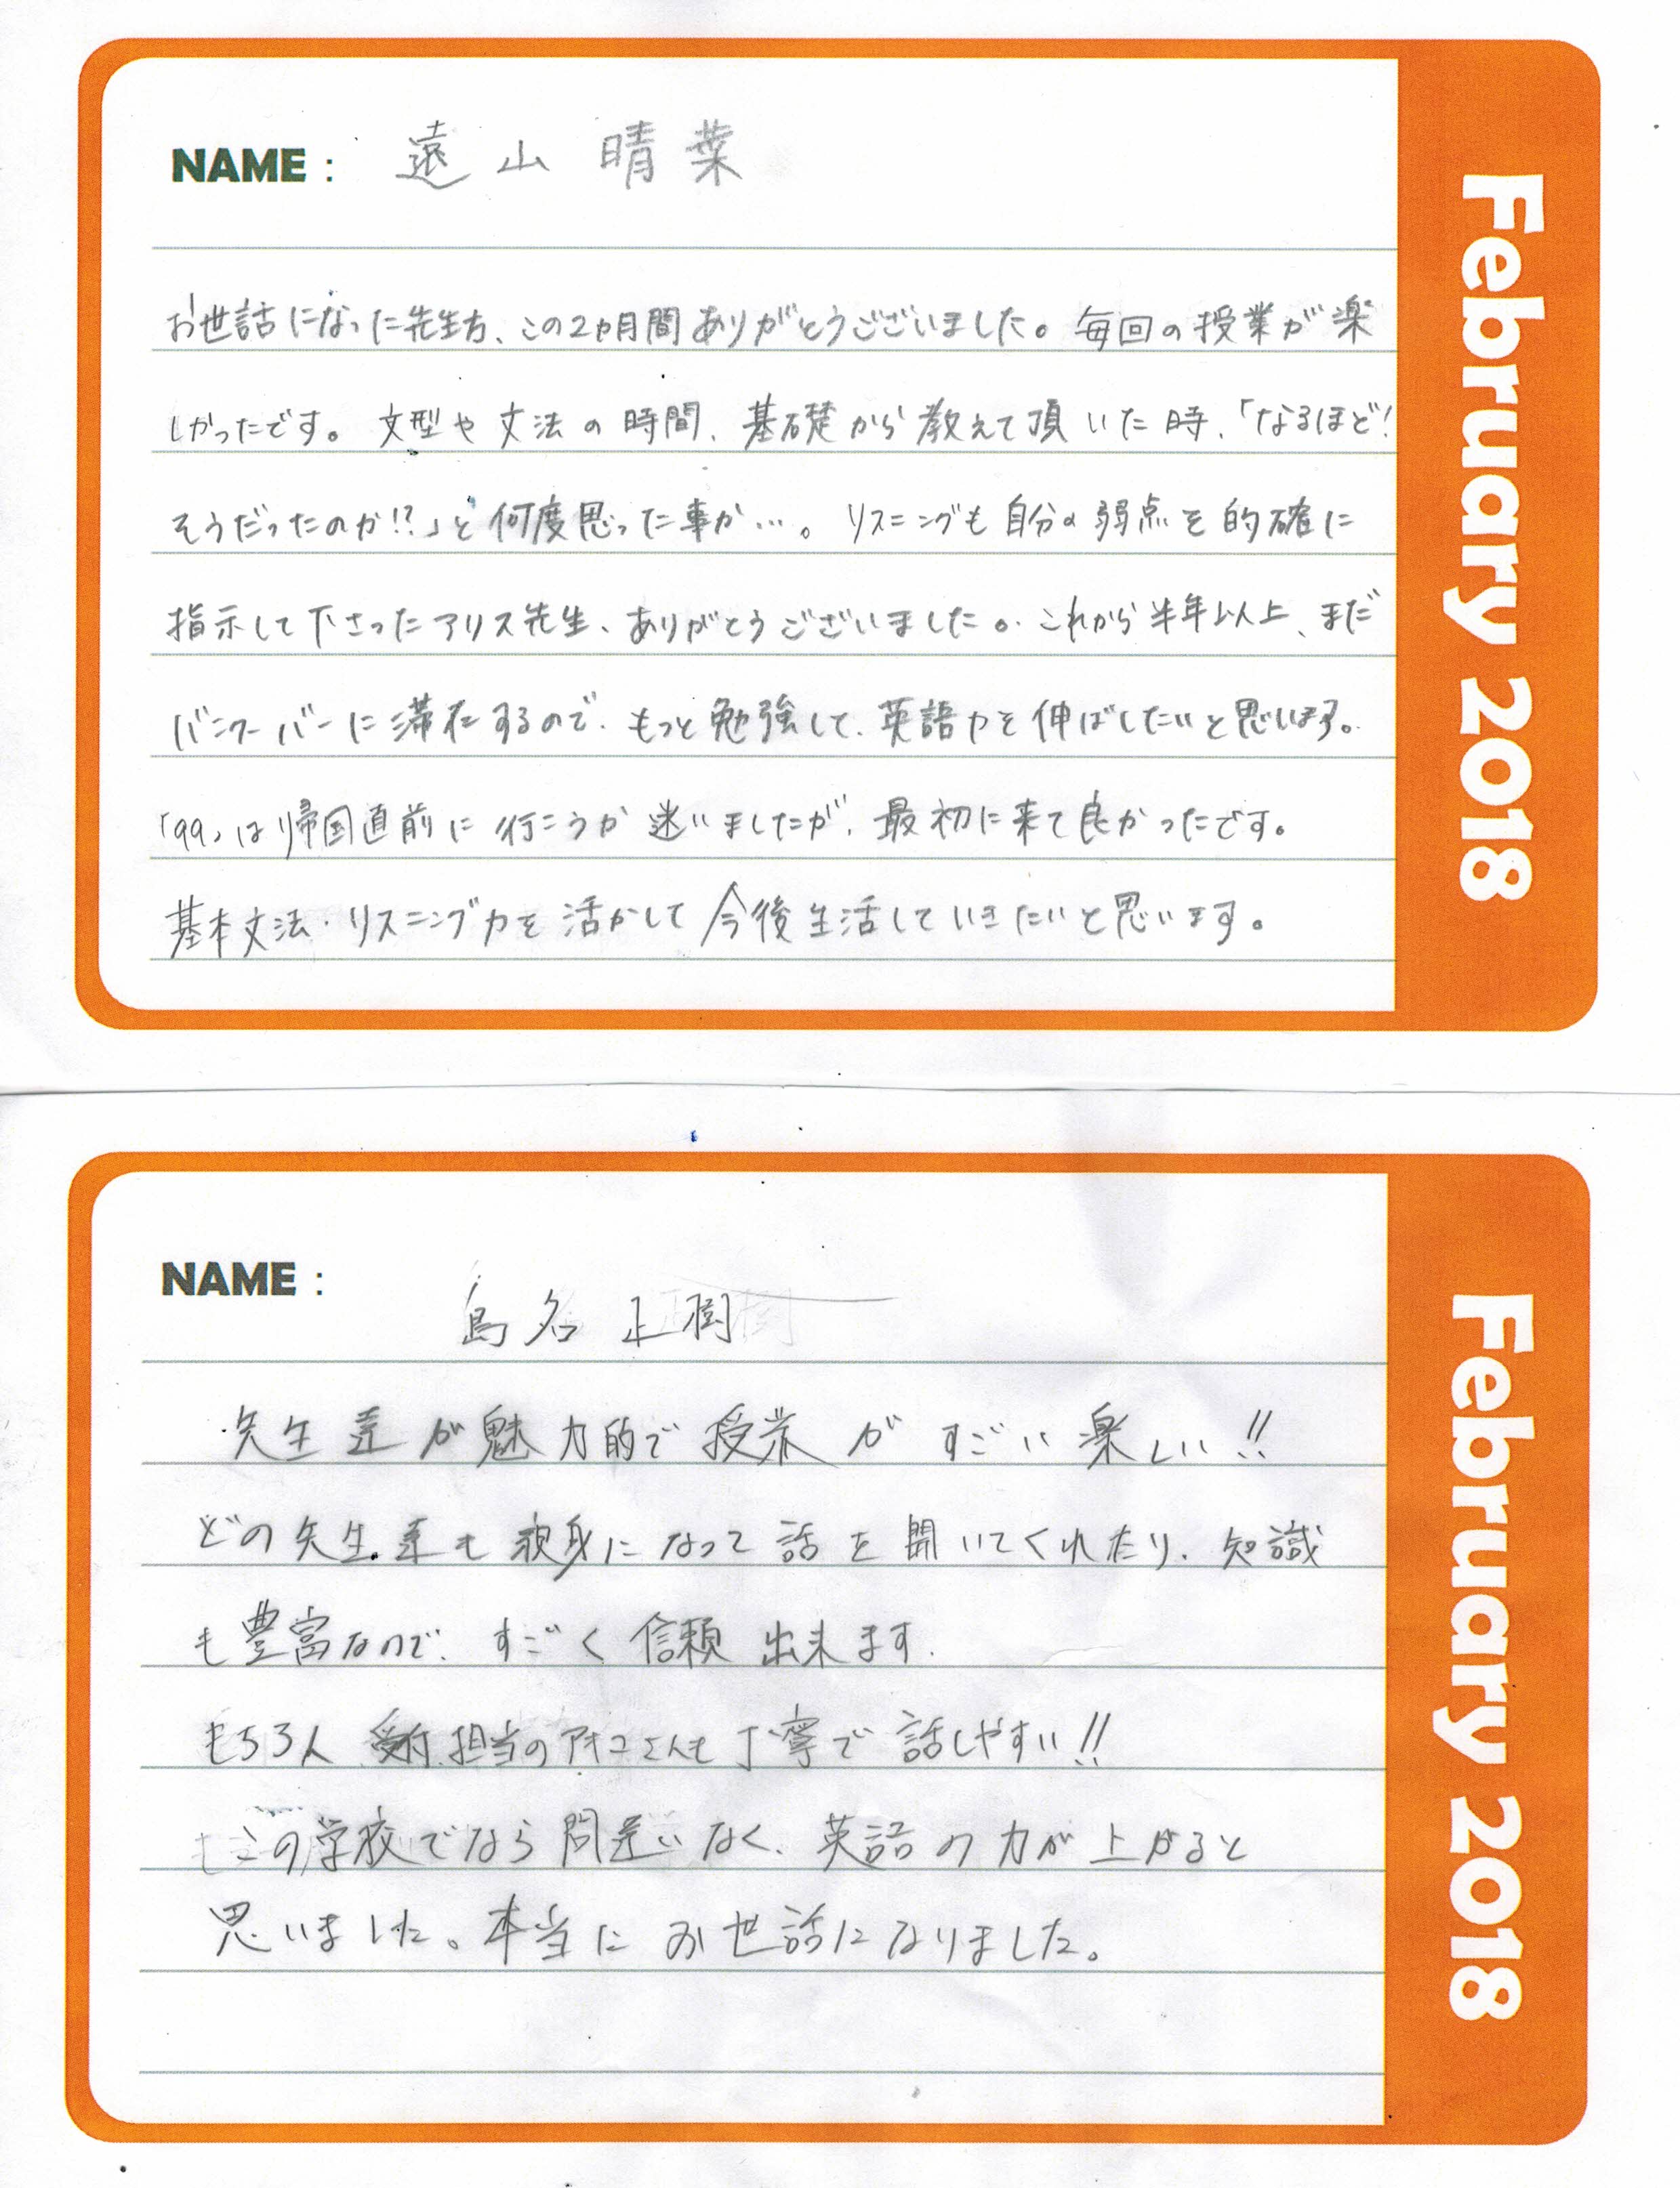 NAME : 遠山 晴葉
お世話になった先生方、この2ヵ月間ありがとうございました。毎回の授業が楽
しかったです。文型や文法の時間、基礎から教えて頂いた時、「なるほど!
そうだったのか!?」と何度思った事か…。リスニングも自分の弱点を的確に
指示して下さったアリス先生、ありがとうございました。これから半年以上、まだ
バンクーバーに滞在するので、もっと勉強して、英語力を伸ばしたいと思います。
「99」は帰国直前に行こうか迷いましたが、最初に来て良かったです。
基本文法・リスニング力を活かして今後生活していきたいと思います。
February 2018
NAME : 島名 正樹
先生達が魅力的で授業がすごい楽しい!!
どの先生達も親身になって話を聞いてくれたり、知識
も豊富なので、すごく信頼出来ます.
もちろん受付担当のアキコさんも丁寧で話しやすい!!
この学校でなら間違いなく、英語の力が上がると
思いました。本当にお世話になりました。
February 2018